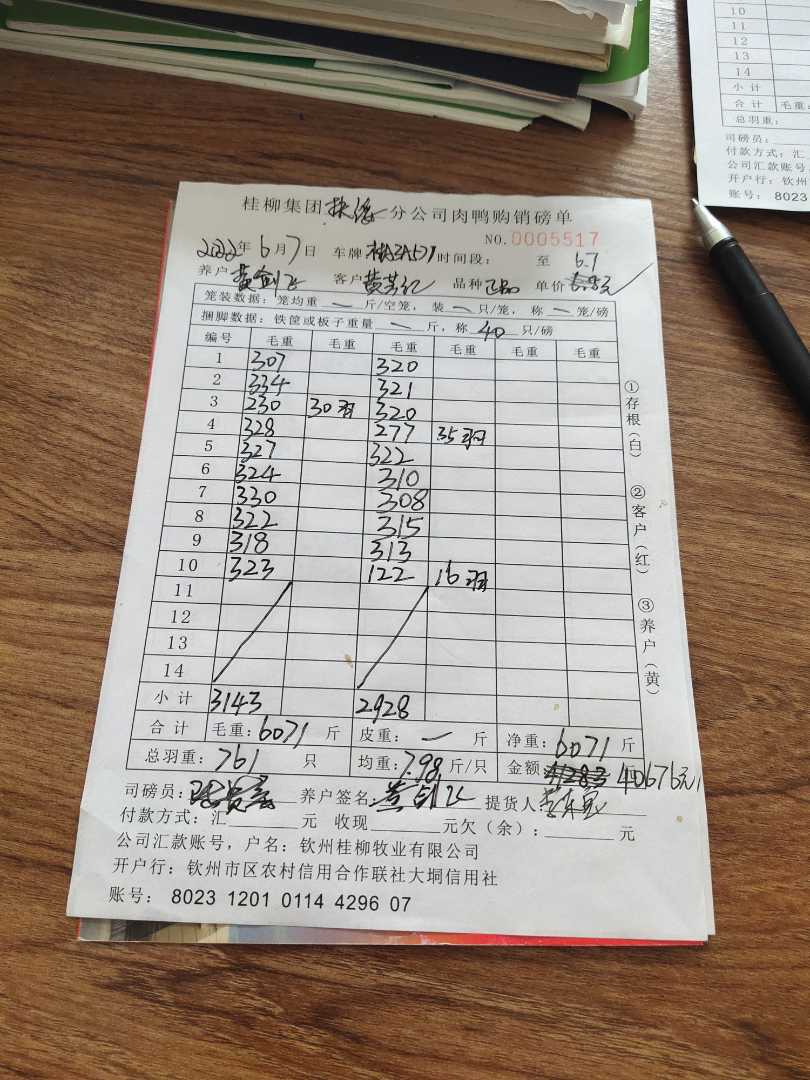 桂柳集团 分公司肉鸭购销磅单
NO.0005517
2022年6月7日 车牌 时间段: 至 6.7
养户 黄剑飞 客户 黄芳亿 品种 单价
笼装数据:笼均重 一 斤/空笼,装 一 只/笼,称 一 笼/磅
捆脚数据:铁筐或板子重量 一 斤,称 40 只/磅
编号 毛重 毛重 毛重 毛重 毛重 毛重
1 307 320
2 334 321
3 230 30羽 320
4 328 277 35羽
5 327 322
6 324 310
7 330 308
8 322 315
9 318 313
10 323 122 16羽
11
12
13
14
小计 3143 2928
合计 毛重:6071 斤 皮重: 一 斤 净重:6071 斤
总羽重:761 只 均重:7.98 斤/只 金额 40676元
司磅员: 养户签名:黄剑飞 提货人:
付款方式:汇 元 收现 元欠(余): 元
公司汇款账号,户名:钦州桂柳牧业有限公司
开户行:钦州市区农村信用合作联社大垌信用社
账号: 8023 1201 0114 4296 07
①存根(白)
②客户(红)
③养户(黄)
10
11
12
13
14
小计
合计 毛重:
总羽重:
司磅员:
付款方式:汇
公司汇款账号
开户行:钦州
账号: 8023